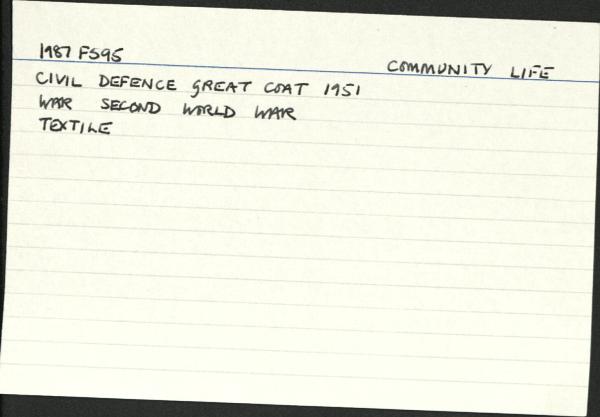 1987 F595
COMMUNITY LIFE
CIVIL DEFENCE GREAT COAT 1951
WAR SECOND WORLD WAR
TEXTILE